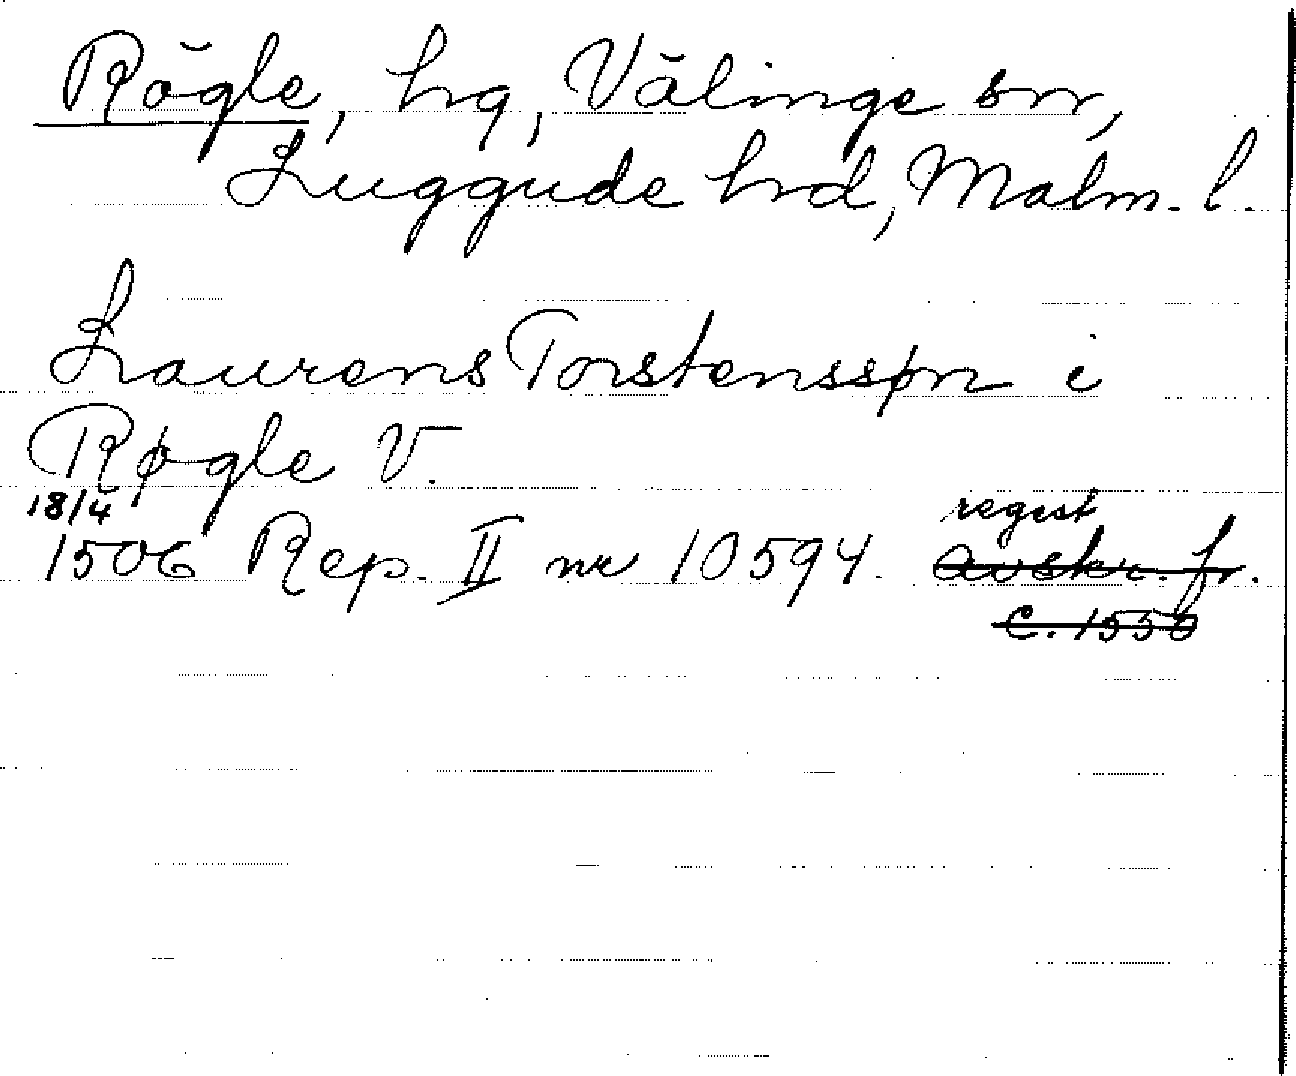 Rögle, hg, Välinge sn,
Luggude hrd, Malm. l.
Laurens Torstenssøn i
Røgle V.
18/4 regist
1506 Rep. II nr 10594. avskr. fr.
c. 1550